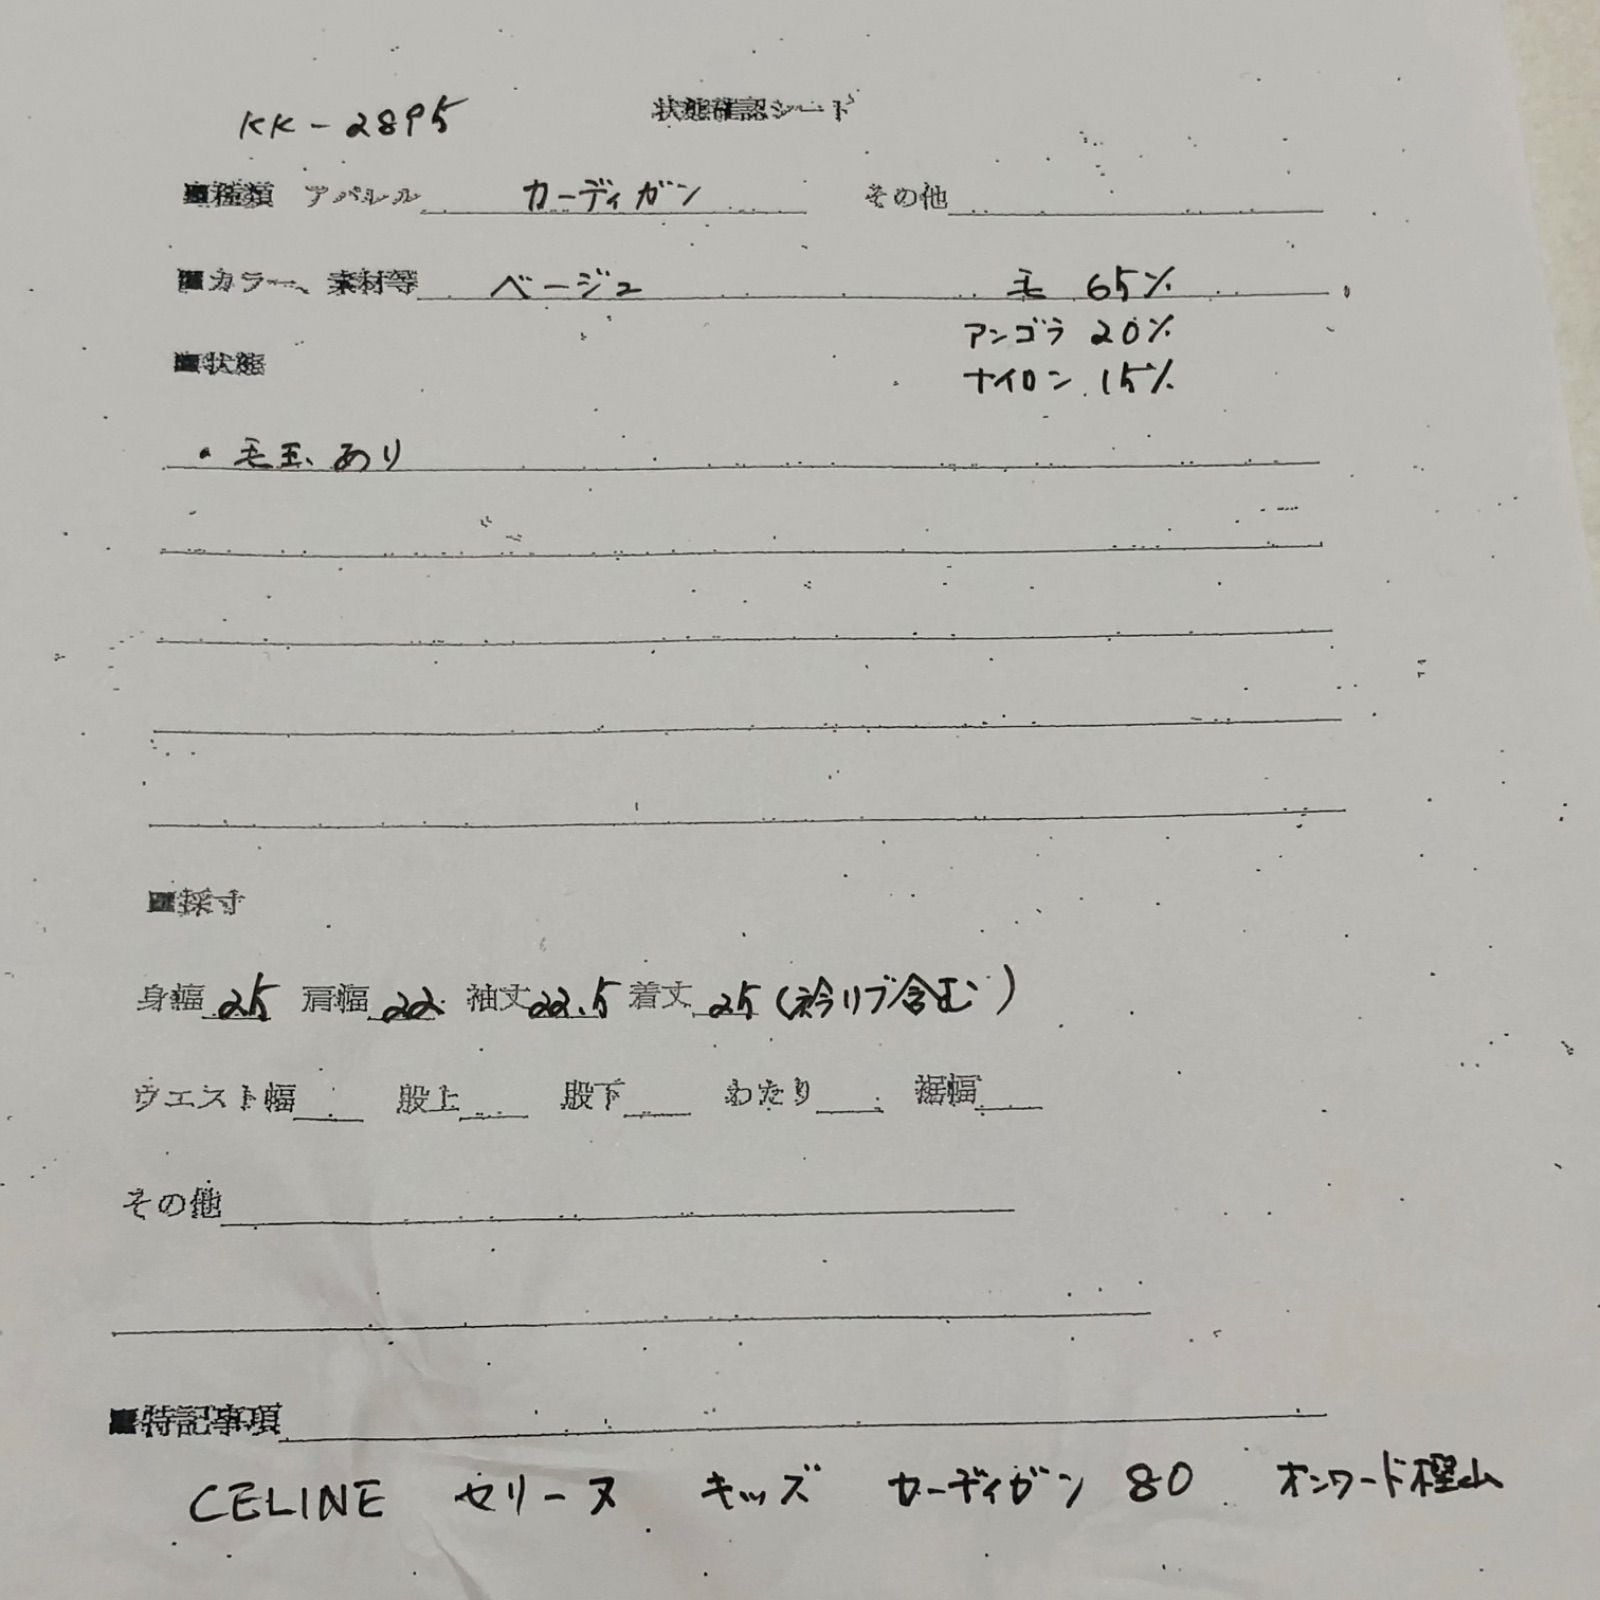 KK-2895 状態確認シート
■種類 アパレル カーディガン その他
■カラー、素材等 ベージュ 毛 65%
アンゴラ 20%
ナイロン 15%
■状態
・毛玉あり
■採寸
身幅 25 肩幅 22 袖丈 22.5 着丈 25 (衿リブ含む)
ウエスト幅 股上 股下 わたり 裾幅
その他
■特記事項
CELINE セリーヌ キッズ カーディガン 80 オンワード樫山